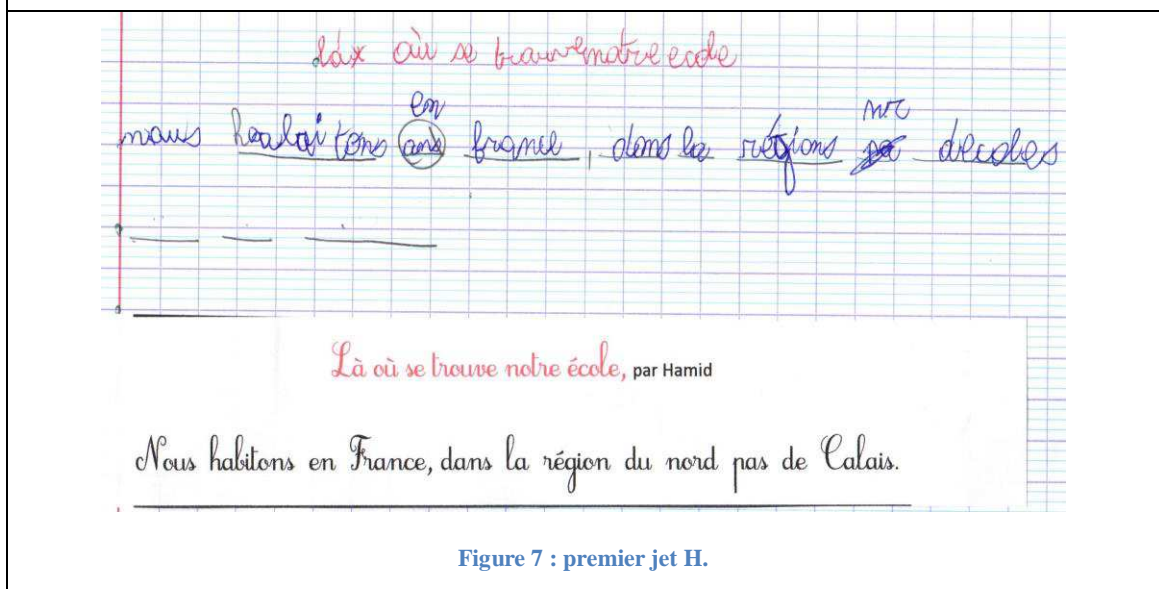 où se trouve notre ecole
nous en
ans france, dans la régions decoles
Là où se trouve notre école, par Hamid
Nous habitons en France, dans la région du nord pas de Calais.
Figure 7 : premier jet H.